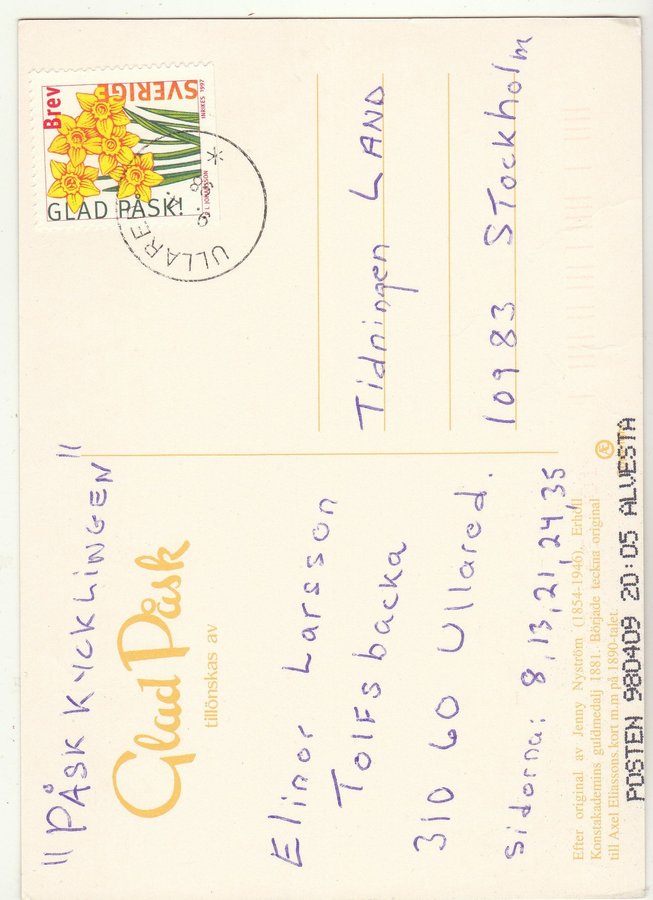 "PÅSK KYCKLINGEN"
Glad Påsk
tillönskas av
Elinor Larsson
Tolfsbacka
310 60 Ullared.
Sidorna: 8, 13, 21, 24, 35
Efter original av Jenny Nyström (1854-1946). Erhöll
Konstakademins guldmedalj 1881. Började teckna original
till Axel Eliassons kort m.m på 1890-talet.
Æ
POSTEN 980409 20:05 ALVESTA
Brev
SVERIGE
INRIKES 1997
I. JOHANSSON
GLAD PÅSK!
ULLARED
Tidningen LAND
10983 STockholm